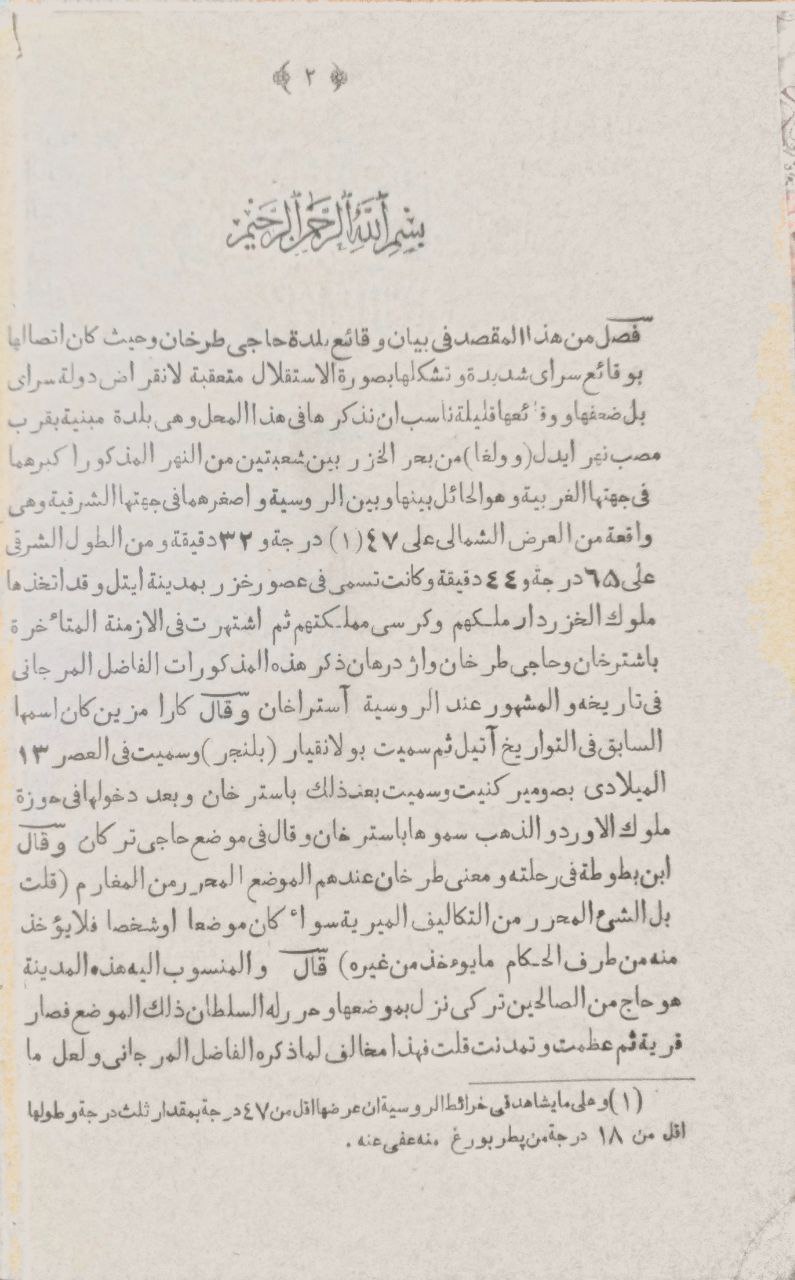 ﴿ ٢ ﴾
بسم الله الرحمن الرحيم
فصل من هذا المقصد فى بيان وقائع بلدة حاجى طرخان وحيث كان اتصالها
بوقائع سراى شديدة وتشكلها بصورة الاستقلال متعقبة لانقراض دولة سراى
بل ضعفها ووقائعها قليلة ناسب ان نذكرها فى هذا المحل وهى بلدة مبنية بقرب
مصب نهر ايدل (وولغا) من بحر الخزر بين شعبتين من النهر المذكور اكبرهما
فى جهتها الغربية وهو الحائل بينها وبين الروسية واصغرهما فى جهتها الشرقية وهى
واقعة من العرض الشمالى على ٤٧ (١) درجة و ٣٢ دقيقة ومن الطول الشرقى
على ٦٥ درجة و ٤٤ دقيقة وكانت تسمى فى عصور خزر بمدينة ايتل وقد اتخذها
ملوك الخزر دار ملكهم وكرسى مملكتهم ثم اشتهرت فى الازمنة المتأخرة
باشترخان وحاجى طرخان واژدرهان ذكر هذه المذكورات الفاضل المرجانى
فى تاريخه والمشهور عند الروسية آستراخان وقال كارا مزين كان اسمها
السابق فى التواريخ آتيل ثم سميت بولانقيار (بلنجر) وسميت فى العصر ١٣
الميلادى بصوميركنيت وسميت بعد ذلك باسترخان وبعد دخولها فى حوزة
ملوك الاوردو الذهب سموها باسترخان وقال فى موضع حاجى تركان وقال
ابن بطوطة فى رحلته ومعنى طرخان عندهم الموضع المحرر من المغارم (قلت
بل الشئ المحرر من التكاليف الميرية سواء كان موضعا اوشخصا فلايؤخذ
منه من طرف الحكام مايوءخذ من غيره) قال والمنسوب اليه هذه المدينة
هو حاج من الصالحين تركى نزل بموضعها وحرر له السلطان ذلك الموضع فصار
قرية ثم عظمت وتمدنت قلت فهذا مخالف لما ذكره الفاضل المرجانى ولعل ما
(١) وعلى مايشاهد فى خرائط الروسية ان عرضها اقل من ٤٧ درجة بمقدار ثلث درجة وطولها
اقل من ١٨ درجة من پطربورغ منه عفى عنه .